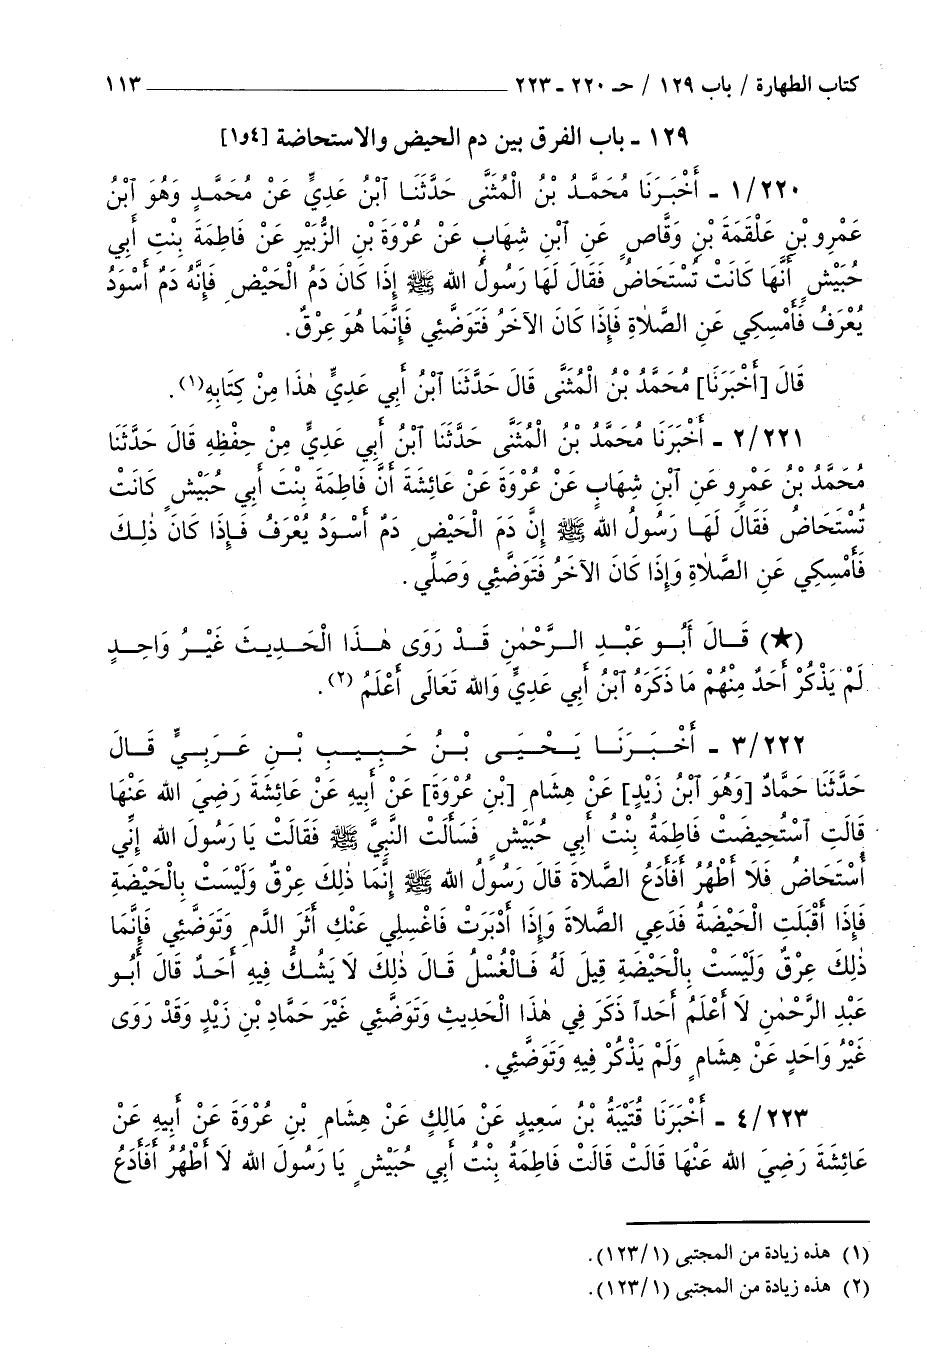 كتاب الطهارة / باب ١٢٩ / حـ ٢٢٠ ـ ٢٢٣ ١١٣
١٢٩ ـ باب الفرق بين دم الحيض والاستحاضة [٤و١]
١/٢٢٠ ـ أَخْبَرَنَا مُحَمَّدُ بْنُ الْمُثَنَّى حَدَّثَنَا ابْنُ عَدِيٍّ عَنْ مُحَمَّدٍ وَهُوَ ٱبْنُ
عَمْرِو بْنِ عَلْقَمَةَ بْنِ وَقَّاصٍ عَنِ ٱبْنِ شِهَابٍ عَنْ عُرْوَةَ بْنِ الزُّبَيْرِ عَنْ فَاطِمَةَ بِنْتِ أَبِي
حُبَيْشٍ أَنَّهَا كَانَتْ تُسْتَحَاضُ فَقَالَ لَهَا رَسُولُ الله ﷺ إِذَا كَانَ دَمُ الْحَيْضِ فَإِنَّهُ دَمٌ أَسْوَدُ
يُعْرَفُ فَأَمْسِكِي عَنِ الصَّلَاةِ فَإِذَا كَانَ الآخَرُ فَتَوَضَّئِي فَإِنَّمَا هُوَ عِرْقٌ.
قَالَ [أَخْبَرَنَا] مُحَمَّدُ بْنُ الْمُثَنَّى قَالَ حَدَّثَنَا ٱبْنُ أَبِي عَدِيٍّ هٰذَا مِنْ كِتَابِهِ(١).
٢/٢٢١ ـ أَخْبَرَنَا مُحَمَّدُ بْنُ الْمُثَنَّى حَدَّثَنَا ٱبْنُ أَبِي عَدِيٍّ مِنْ حِفْظِهِ قَالَ حَدَّثَنَا
مُحَمَّدُ بْنُ عَمْرٍو عَنِ ٱبْنِ شِهَابٍ عَنْ عُرْوَةَ عَنْ عَائِشَةَ أَنَّ فَاطِمَةَ بِنْتَ أَبِي حُبَيْشٍ كَانَتْ
تُسْتَحَاضُ فَقَالَ لَهَا رَسُولُ الله ﷺ إِنَّ دَمَ الْحَيْضِ دَمٌ أَسْوَدُ يُعْرَفُ فَإِذَا كَانَ ذٰلِكَ
فَأَمْسِكِي عَنِ الصَّلَاةِ وَإِذَا كَانَ الآخَرُ فَتَوَضَّئِي وَصَلِّي.
(★) قَالَ أَبُو عَبْدِ الرَّحْمٰنِ قَدْ رَوَى هٰذَا الْحَدِيثَ غَيْرُ وَاحِدٍ
لَمْ يَذْكُرْ أَحَدٌ مِنْهُمْ مَا ذَكَرَهُ ٱبْنُ أَبِي عَدِيٍّ وَالله تَعَالَى أَعْلَمُ(٢).
٣/٢٢٢ ـ أَخْبَرَنَا يَحْيَى بْنُ حَبِيبِ بْنِ عَرَبِيٍّ قَالَ
حَدَّثَنَا حَمَّادٌ [وَهُوَ ٱبْنُ زَيْدٍ] عَنْ هِشَامِ [بْنِ عُرْوَةَ] عَنْ أَبِيهِ عَنْ عَائِشَةَ رَضِيَ الله عَنْهَا
قَالَتِ ٱسْتُحِيضَتْ فَاطِمَةُ بِنْتُ أَبِي حُبَيْشٍ فَسَأَلَتْ النَّبِيَّ ﷺ فَقَالَتْ يَا رَسُولَ الله إِنِّي
أُسْتَحَاضُ فَلَا أَطْهُرُ أَفَأَدَعُ الصَّلَاةَ قَالَ رَسُولُ الله ﷺ إِنَّمَا ذٰلِكَ عِرْقٌ وَلَيْسَتْ بِالْحَيْضَةِ
فَإِذَا أَقْبَلَتِ الْحَيْضَةُ فَدَعِي الصَّلَاةَ وَإِذَا أَدْبَرَتْ فَاغْسِلِي عَنْكِ أَثَرَ الدَّمِ وَتَوَضَّئِي فَإِنَّمَا
ذٰلِكَ عِرْقٌ وَلَيْسَتْ بِالْحَيْضَةِ قِيلَ لَهُ فَالْغُسْلُ قَالَ ذٰلِكَ لَا يَشُكُّ فِيهِ أَحَدٌ قَالَ أَبُو
عَبْدِ الرَّحْمٰنِ لَا أَعْلَمُ أَحَداً ذَكَرَ فِي هٰذَا الْحَدِيثِ وَتَوَضَّئِي غَيْرَ حَمَّادِ بْنِ زَيْدٍ وَقَدْ رَوَى
غَيْرُ وَاحِدٍ عَنْ هِشَامٍ وَلَمْ يَذْكُرْ فِيهِ وَتَوَضَّئِي.
٤/٢٢٣ ـ أَخْبَرَنَا قُتَيْبَةُ بْنُ سَعِيدٍ عَنْ مَالِكٍ عَنْ هِشَامِ بْنِ عُرْوَةَ عَنْ أَبِيهِ عَنْ
عَائِشَةَ رَضِيَ الله عَنْهَا قَالَتْ قَالَتْ فَاطِمَةُ بِنْتُ أَبِي حُبَيْشٍ يَا رَسُولَ الله لَا أَطْهُرُ أَفَأَدَعُ
(١) هذه زيادة من المجتبى (١٢٣/١).
(٢) هذه زيادة من المجتبى (١٢٣/١).